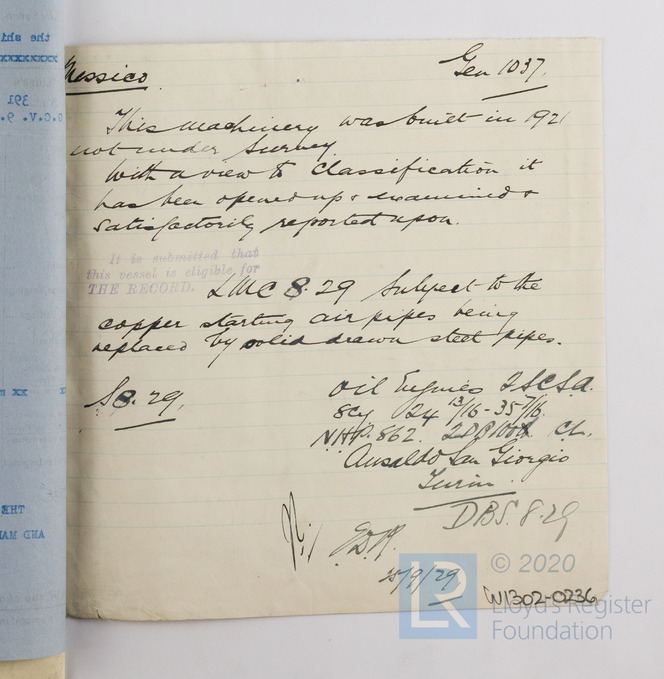 Messico
Gen 1037.
This machinery was built in 1921
not under Survey
With a view to classification it
has been opened up & examined &
satisfactorily reported upon.
It is submitted that
this vessel is eligible for
THE RECORD. LMC 8.29 Subject to the
copper starting air pipes being
replaced by solid drawn steel pipes.
S8.29.
Oil Engines 2SCSA.
8Cy 24 13/16 - 35 7/16
NHP. 862. 2DB 100lb. CL.
Ansaldo San Giorgio
Turin
DBS. 8.29
5/9/29
W1302-0236
© 2020
Lloyd's Register
Foundation
LR
the shi
xxxxxxxx
391
G.C.V. 9.
xx
THE
AND MA